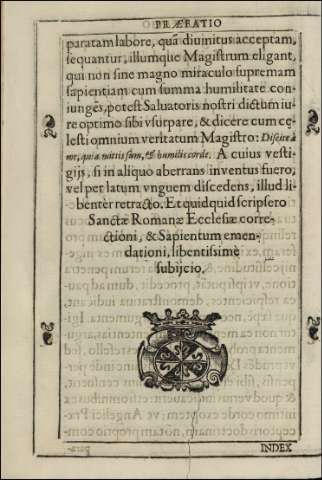 PRÆFATIO
paratam labore, quã diuinitus acceptam,
sequantur, illumque Magistrum eligant,
qui non sine magno miraculo supremam
sapientiam cum summa humilitate con-
iungẽs, potest Saluatoris nostri dictum iu-
re optimo sibi vsurpare, & dicere cum cę-
lesti omnium veritatum Magistro: Discite à
me, quia mitis sum, & humilis corde. A cuius vesti-
gijs, si in aliquo aberrans inventus fuero,
vel per latum vnguem discedens, illud li-
bentèr retracto. Et quidquid scripsero
Sanctæ Romanæ Ecclesiæ corre-
ctioni, & Sapientum emen-
dationi, libentissimè
subijcio.
INDEX